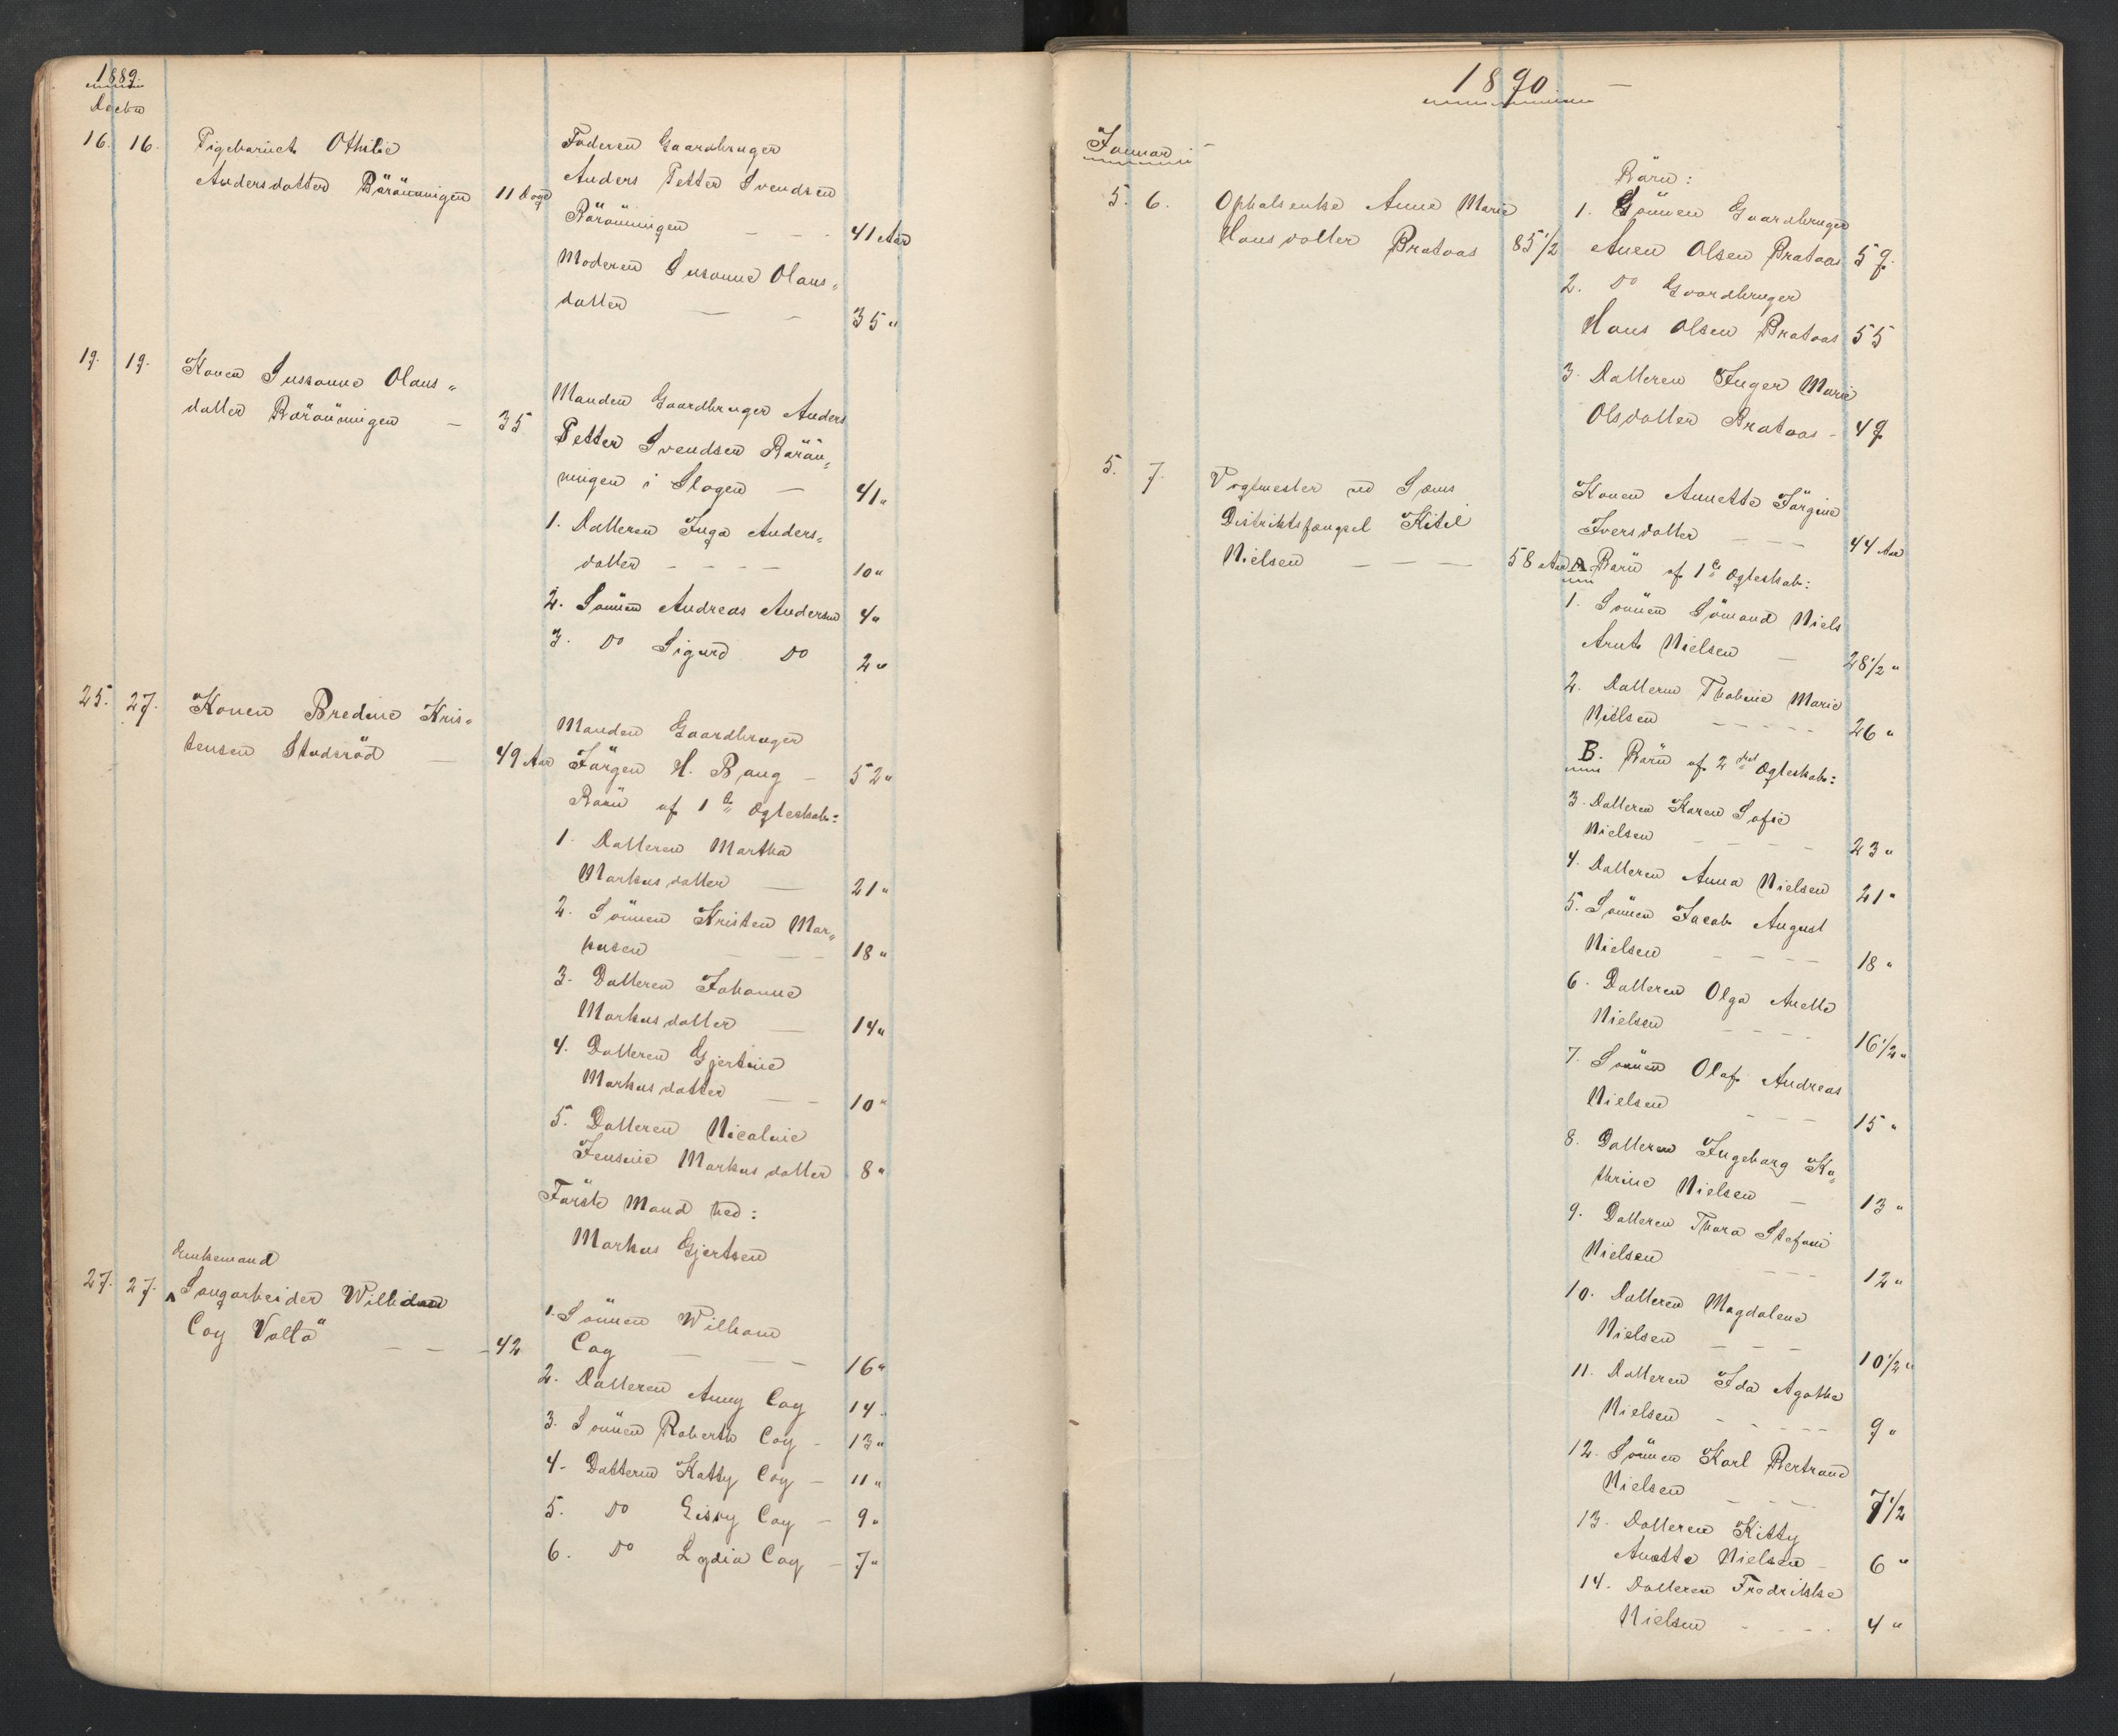 1889.
Decbr
16. 16. Pigebarnet Othilie
Andersdatter Röråsningen 11 Dage
Faderen Gaardbruger
Anders Petter Svendsen
41 Aar
Moderen Susanne Olaus„
datter — - 35 "
19. 19. Konen Sussanne Olaus„
datter — 35
Manden Gaardbruger Anders
Petter Svendsen
ningen i Slagen — 41 "
1. Datteren Inga Anders„
datter - - - - 10 "
2. Sönnen Andreas Andersen 4 "
3. Do Sigurd Do 2 "
25. 27. Konen Bredine Kris„
tensen Studeröd — 49 Aar
Manden Gaardbruger
Jörgen H. Baug - 52 "
Börn af 1e Ægteskab:
1. Datteren Martha
Markusdatter — 21 "
2. Sönnen Kristen Mar„
kusen - - - 18 "
3. Datteren Johanne
Markusdatter — 14 "
4. Datteren Gjertine
Markusdatter - - 10 "
5. Datteren Nicoline
Jensine Markusdatter 8 "
Förste Mand hed:
Markus Gjertsen
Enkemand
27. 27. Saugarbeider William
Coy Vallö - - - 42
1. Sönnen William
Coy - - - 16 "
2. Datteren Anny Coy 14 "
3. Sönnen Roberth Coy - 13 "
4. Datteren Katty Coy - 11 "
5. Do Lissy Coy - 9 "
6. Do Lydia Coy - 7 "
1890. —
Januar
Börn:
5. 6. Opholsenke Anne Marie
Hansdatter Brataas 85 1/2
1. Sönnen Gaardbruger
Anen Olsen Brataas 59.
2. Do Gaardbruger
Hans Olsen Brataas 55
3. Datteren Inger Marie
Olsdatter Brataas - 49
5. 7. Vogtmester ved Sems
Distriktsfængsel Kitil
Nielsen - - - 58 Aar
Konen Annette Jörgine
Iversdatter - - - 44 Aar
A. Börn af 1e Ægteskab:
1. Sönnen Sömand Niels
Arnt Nielsen - 28 1/2 "
2. Datteren Thobine Marie
Nielsen - - - - - 26 "
B. Börn af 2det Ægteskab:
3. Datteren Karen Sofie
Nielsen - - - - 23 "
4. Datteren Anna Nielsen 21 "
5. Sönnen Jacob August
Nielsen - - - - 18 "
6. Datteren Olga Anette
Nielsen - - - - 16 1/2 "
7. Sönnen Olaf Andreas
Nielsen - - - 15 "
8. Datteren Ingeborg Ka„
thrine Nielsen - 13 "
9. Datteren Thora Stefani
Nielsen - - - 12 "
10. Datteren Magdalene
Nielsen - - - 10 1/2 "
11. Datteren Ida Agathe
Nielsen - - - - 9 "
12. Sönnen Karl Bertrand
Nielsen - - - 7 1/2
13. Datteren Kitty
Anette Nielsen - 6 "
14. Datteren Fredrikke
Nielsen - - - - 4 "